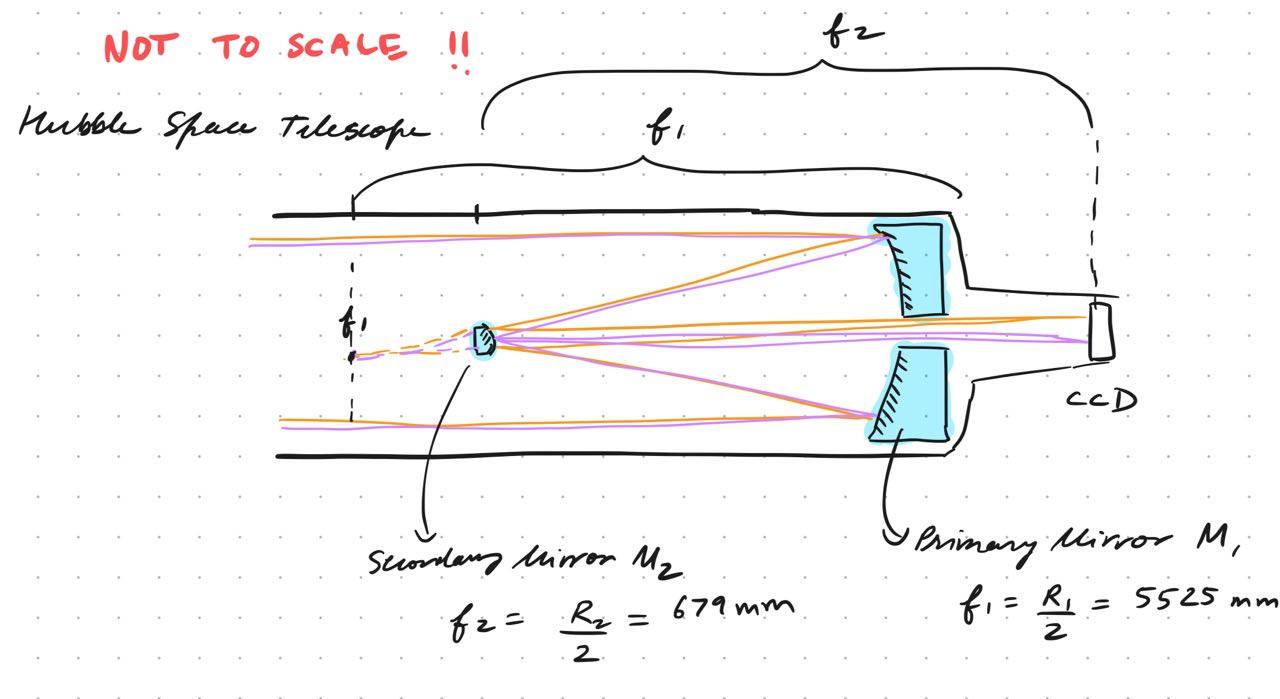 NOT TO SCALE !!
f2
Hubble Space Telescope
f1
f1
CCD
Secondary Mirror M2
f2 = R2/2 = 679 mm
Primary Mirror M1
f1 = R1/2 = 5525 mm